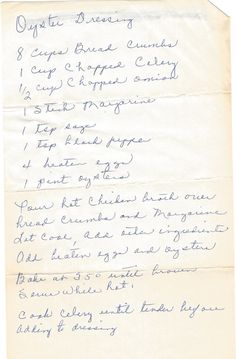 Oyster Dressing
8 cups Bread Crumbs
1 cup Chopped Celery
1/2 cup Chopped onion
1 Stick Margarine
1 tsp sage
1 tsp black pepper
4 beaten eggs
1 pint oysters
Pour hot Chicken broth over
bread crumbs and Margarine
Let cool, add other ingredients
Add beaten eggs and oysters
Bake at 350 until brown
Serve While hot.
Cook celery until tender before
adding to dressing